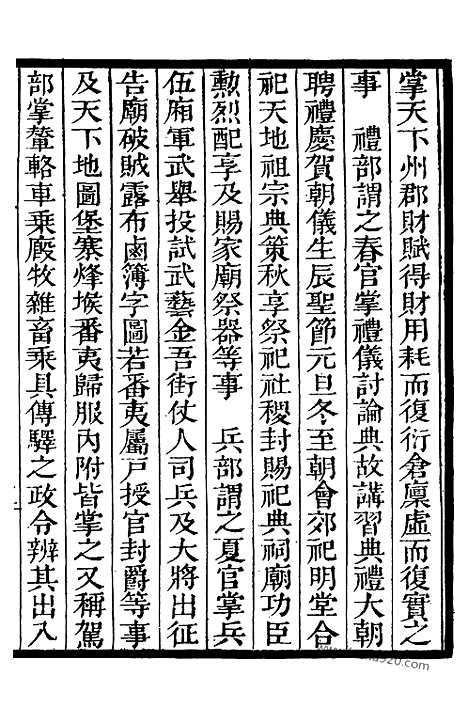 掌天下州郡財賦得財用耗而復衍倉廩虛而復實之
事　禮部謂之春官掌禮儀討論典故講習典禮大朝
聘禮慶賀朝儀生辰聖節元旦冬至朝會郊祀明堂合
祀天地祖宗典策秋享祭祀社稷封賜祀典祠廟功臣
勲烈配享及賜家廟祭器等事　兵部謂之夏官掌兵
伍廂軍武舉投試武藝金吾街仗人司兵及大將出征
告廟破賊露布鹵簿字圖若番夷屬戸授官封爵等事
及天下地圖堡寨烽堠番夷歸服內附皆掌之又稱駕
部掌輦輅車乘廏牧雜畜乘具傳驛之政令辨其出入